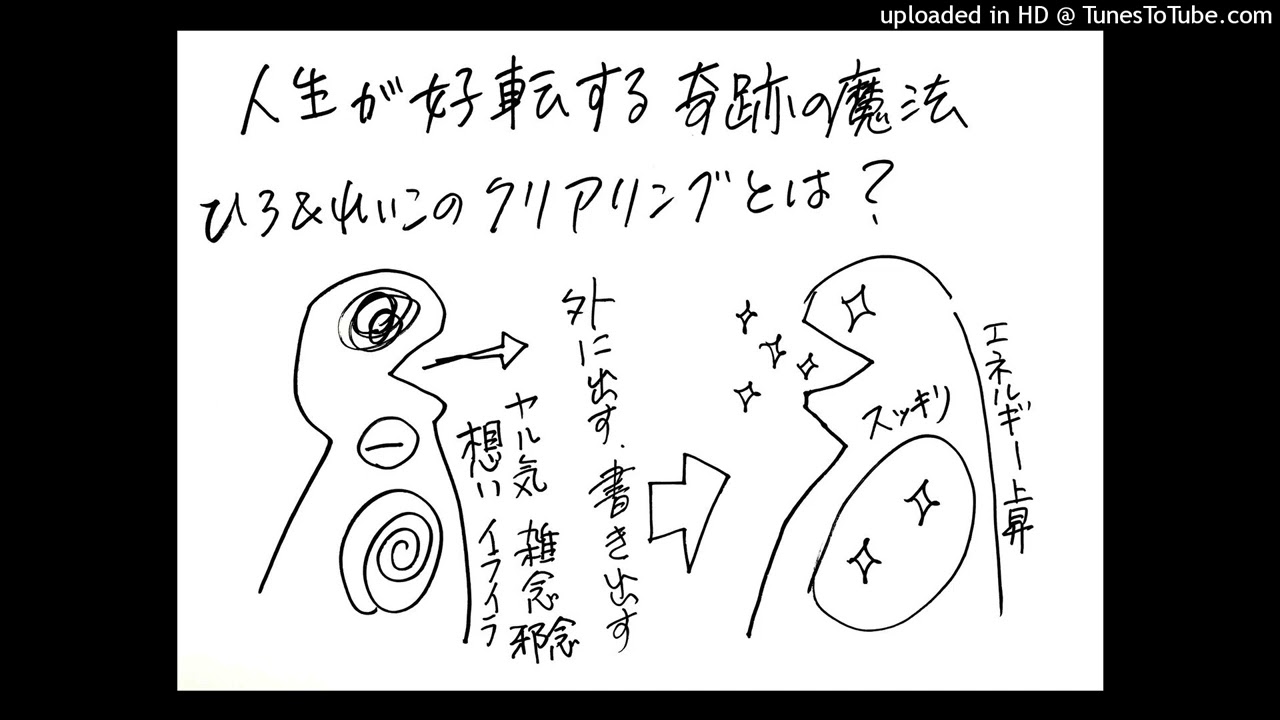 uploaded in HD @ TunesToTube.com
人生が好転する奇跡の魔法
ひろ&れいこのクリアリングとは?
外に出す、書き出す
ヤル気 雑念 邪念
想い イライラ
スッキリ
エネルギー上昇